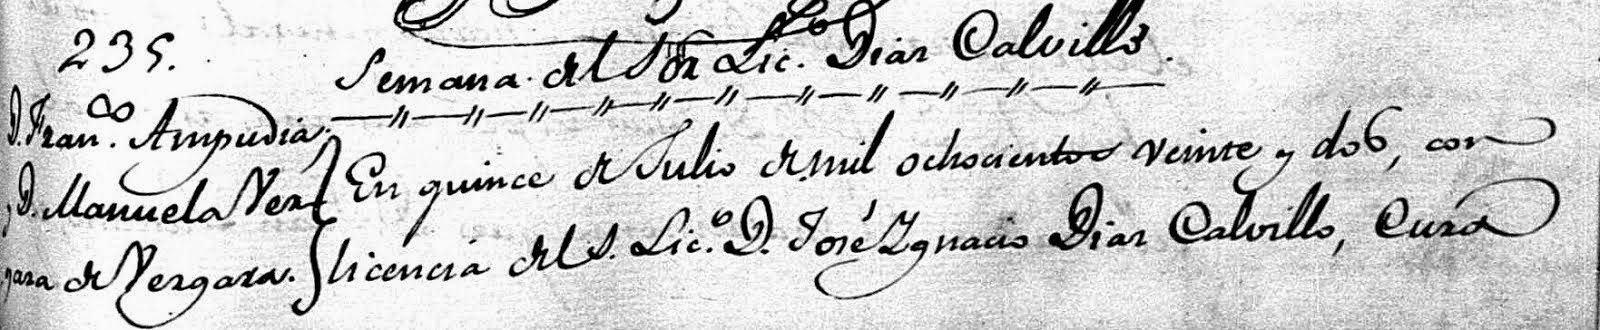 235.
Semana del Sor Lic.do Diaz Calvillo.
D. Franco. Ampudia
y D. Manuela Ver
gara de Vergara.
En quince de Julio de mil ochocientos veinte y dos, con
licencia del S. Lic.o D. José Ygnacio Diaz Calvillo, Cura